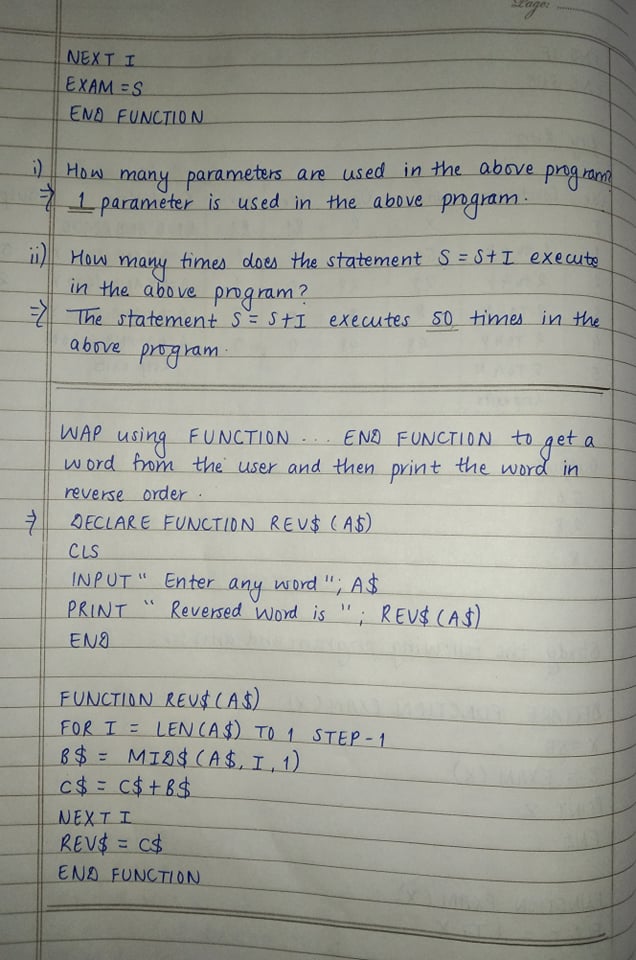 Page:
NEXT I
EXAM = S
END FUNCTION
i) How many parameters are used in the above program?
⇒ 1 parameter is used in the above program.
ii) How many times does the statement S = S+I execute
in the above program?
⇒ The statement S = S+I executes 50 times in the
above program.
WAP using FUNCTION ... END FUNCTION to get a
word from the user and then print the word in
reverse order.
⇒ DECLARE FUNCTION REV$ (A$)
CLS
INPUT " Enter any word"; A$
PRINT " Reversed Word is "; REV$(A$)
END
FUNCTION REV$(A$)
FOR I = LEN(A$) TO 1 STEP-1
B$ = MID$(A$, I, 1)
C$ = C$+B$
NEXT I
REV$ = C$
END FUNCTION